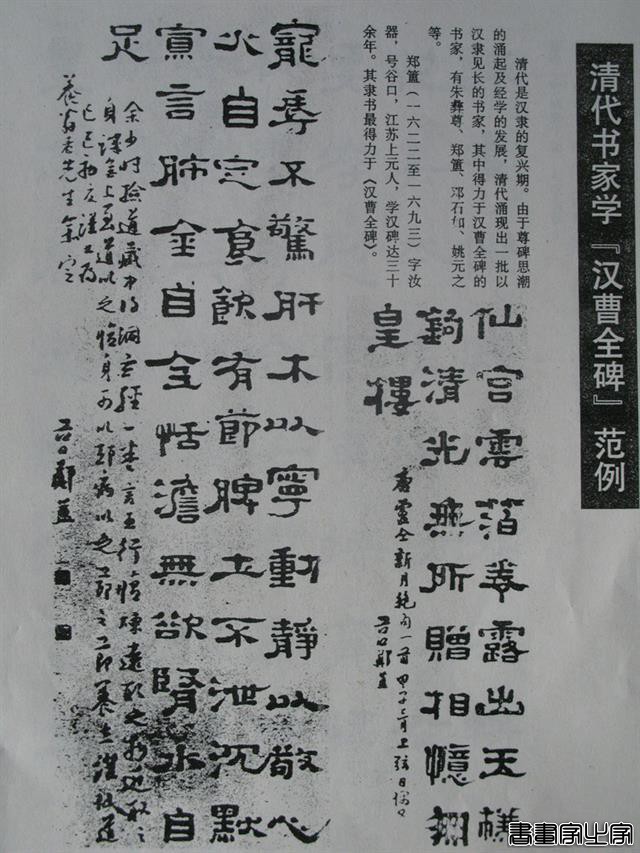 清代书家学『汉曹全碑』范例
清代是汉隶的复兴期。由于尊碑思潮
的涌起及经学的发展，清代涌现出一批以
汉隶见长的书家，其中得力于汉曹全碑的
书家，有朱彝尊、郑簠、邓石如、姚元之
等。
郑簠（一六二二至一六九三）字汝
器，号谷口，江苏上元人，学汉碑达三十
余年。其隶书最得力于《汉曹全碑》。
仙宫云箔卷露出玉
鉤清光無所贈相憶
皇樓
唐盧仝新月絕句一首
谷口鄭簠
寵辱不驚肝木以寧動靜以敬心
火自定飲食有節脾土不泄沉默
寡言肺金自全恬澹無欲腎水自
足
余少時撿道藏中得洞玄經一卷言五行
養生
谷口鄭簠
書畫家之家